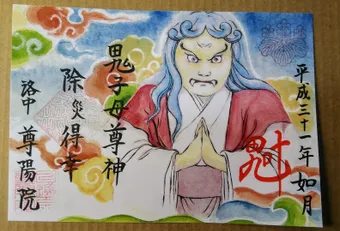 平成三十一年 如月
鬼子母尊神
除災得幸
洛中 尊陽院